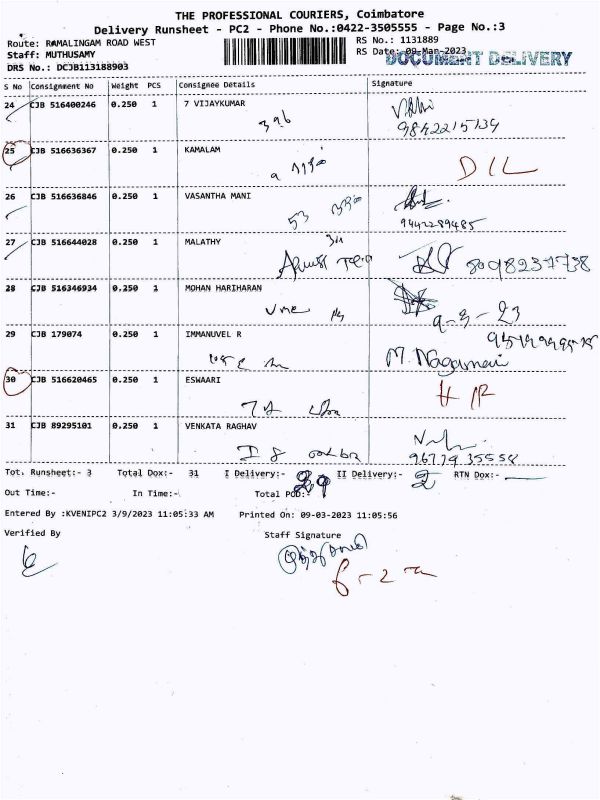 THE PROFESSIONAL COURIERS, Coimbatore
Delivery Runsheet - PC2 - Phone No.:0422-3505555 - Page No.:3
Route: RAMALINGAM ROAD WEST
RS No.: 1131889
Staff: MUTHUSAMY
RS Date: 09-Mar-2023
DOCUMENT DELIVERY
DRS No.: DCJB113188903
S No Consignment No Weight PCS Consignee Details Signature
24 CJB 516400246 0.250 1 7 VIJAYKUMAR
396
9842215134
25 CJB 516636367 0.250 1 KAMALAM
D I L
26 CJB 516636846 0.250 1 VASANTHA MANI
53
9442289485
27 CJB 516644028 0.250 1 MALATHY
8098237738
28 CJB 516346934 0.250 1 MOHAN HARIHARAN
9-3-23
29 CJB 179074 0.250 1 IMMANUVEL R
M. Nagamani
30 CJB 516620465 0.250 1 ESWAARI
31 CJB 89295101 0.250 1 VENKATA RAGHAV
9677935558
Tot. Runsheet:- 3 Total Dox:- 31 I Delivery:- 29 II Delivery:- 2 RTN Dox:-
Out Time:- In Time:- Total POD:-
Entered By :KVENIPC2 3/9/2023 11:05:33 AM Printed On: 09-03-2023 11:05:56
Verified By Staff Signature